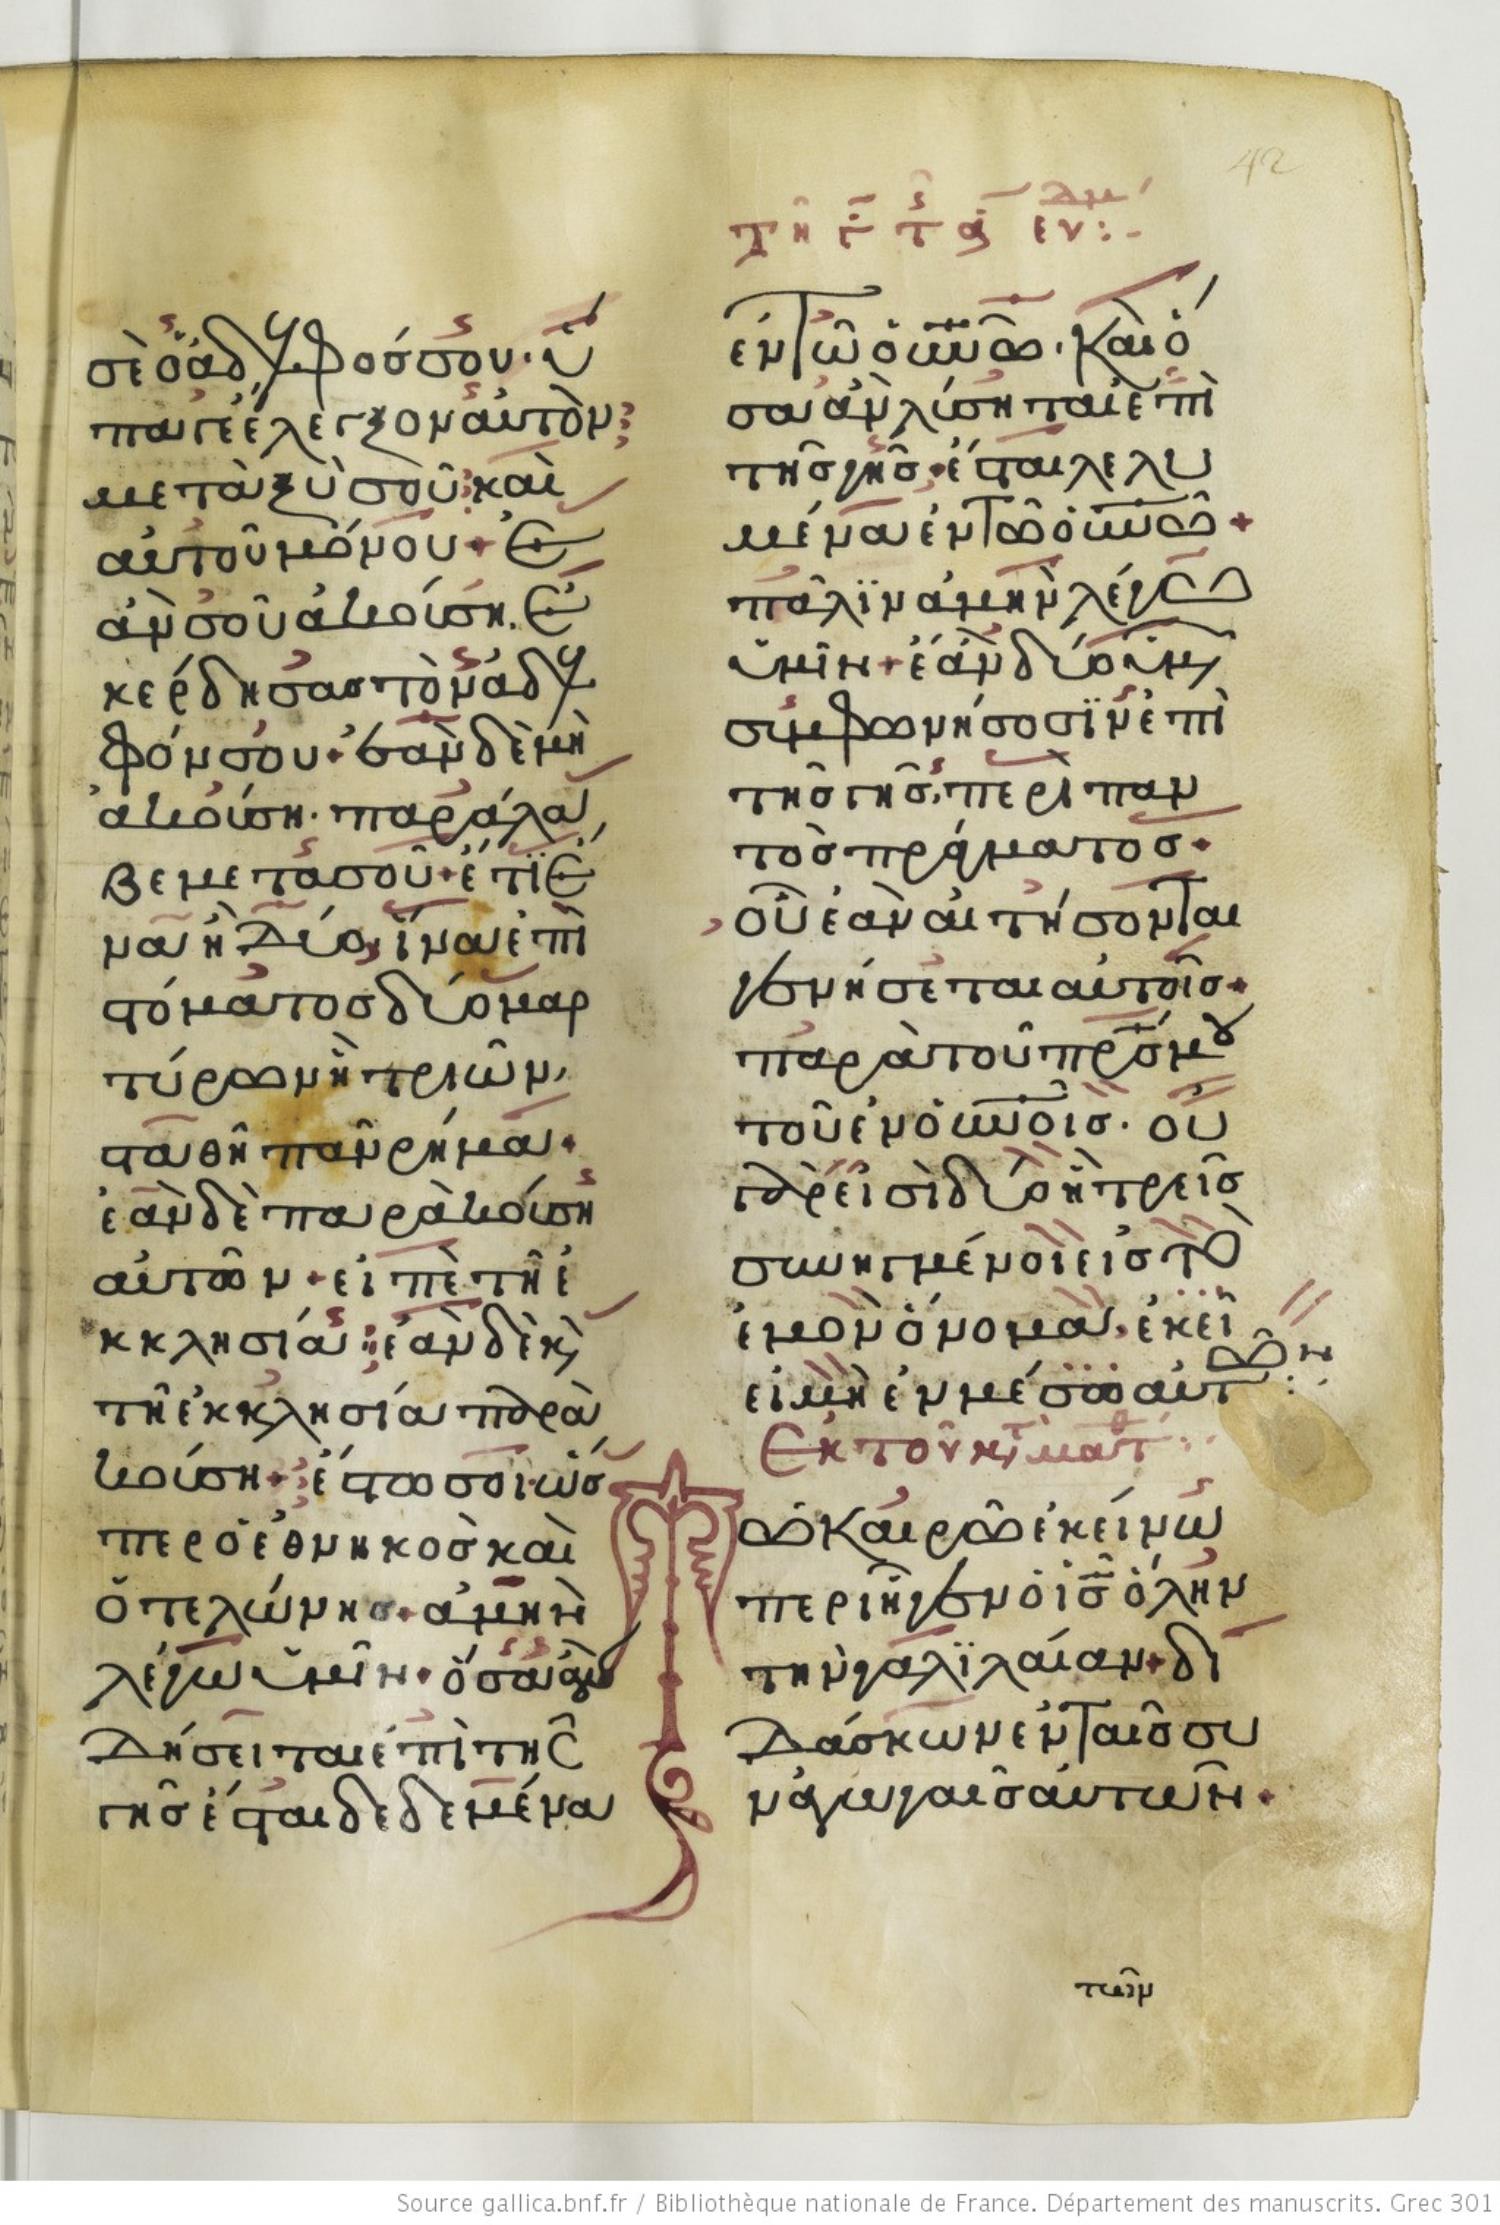 42
τῆ γ̄ τ
σὲ ὁ ἀδελφόσ σου· ὕ
παγε ἔλεγξον αὐτὸν
μεταξὺ σοῦ καὶ
αὐτοῦ μόνου + ἐ
ὰν σοῦ ἀκούση. ἐ
κέρδησασ τὸν ἀδελ
φόν σου + ἐὰν δὲ μὴ
ἀκούση· παράλα
βε μετα σοῦ + ἔτϊ ἕ
να ἢ δύο, ἵνα ἐπὶ
στόματοσ δύο μαρ
τύρων ἢ τριῶν,
σταθῆ πᾶν ρήμα +
ἐὰν δὲ παρὰκούση
αὐτῶν + εἰπὲ τῆ ἐ
κκλησία : ἐὰν δὲ κ
τῆ ἐκκλησία παρα
κούση + ἔστω σοι ὥσ
περ ὁ ἐθνηκοσ καὶ
ὁ τελώνησ + ἀμὴν
λέγω ὑμῖν + ὅσα ἂν
δήσειται ἐπὶ τῆσ
γῆσ ἔσται δεδεμένα
ἐν τῶ οὐνῶ· καὶ ὅ
σα ἀν λύσηται ἐπὶ
τῆσ γῆσ + ἔσται λελυ
μένα ἐν τῶ οὐνῶ +
πάλϊν ἀμὴν λέγω
ὑμῖν + ἐὰν δύο ὑμ
συμφωνήσοσϊν ἐπὶ
τῆσ γῆσ, περὶ παν
τὸσ πράγματοσ +
οὗ ἐὰν αιτήσονται
γενήσεται αὐτοῖσ +
παρὰ τοῦ πρσ μου
τοῦ ἐν οὐνοῖσ· οὗ
γάρ εἰσὶ δύο ἢ τρεῖσ
συνηγμένοι εἰσ τὸ
ἐμὸν ὄνομα, ἐκεῖ
εἰμὴ ἐν μέσω αὐτῶν
Ἐκ τοῦ κτ ματθ
ῶ Καιρῶ ἐκείνω
περιῆγεν ὁ ισ ὅλην
τὴν γαλϊλαίαν + δι
δάσκων ἐν ταῖσ συ
ναγωγαισ αὐτῶν +
τωῖν
Source gallica.bnf.fr / Bibliothèque nationale de France. Département des manuscrits. Grec 301